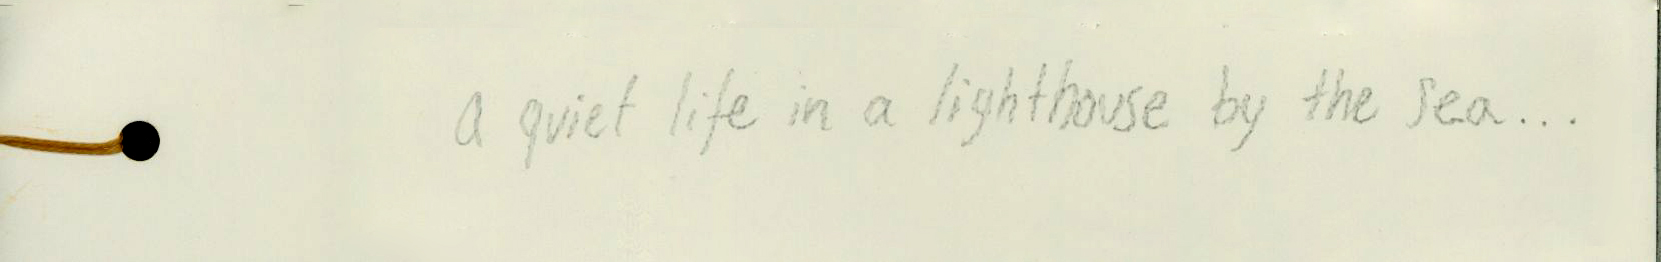 a quiet life in a lighthouse by the sea...